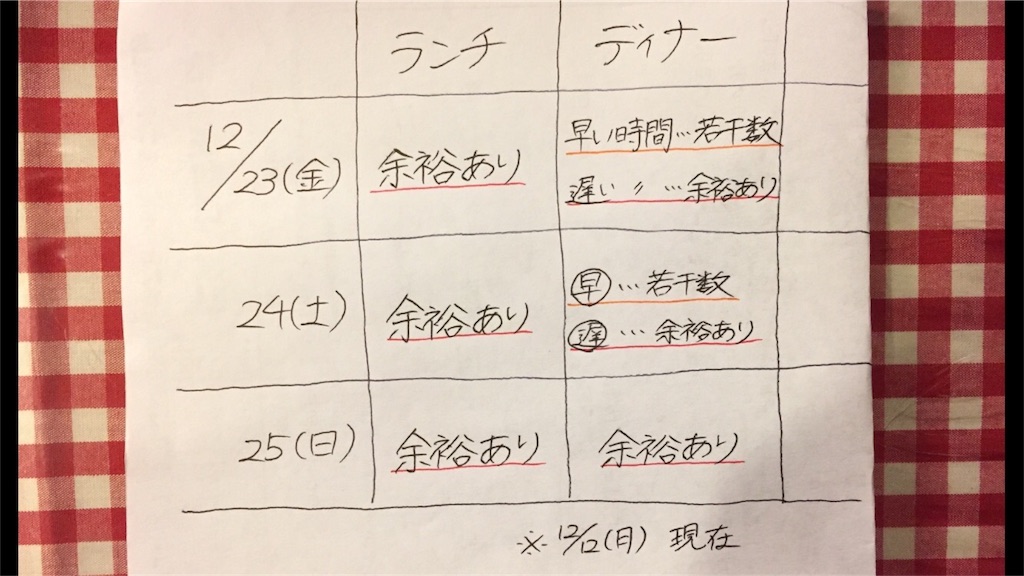 ランチ ディナー
12/23(金) 余裕あり 早い時間…若干数
遅い 〃 …余裕あり
24(土) 余裕あり 早…若干数
遅…余裕あり
25(日) 余裕あり 余裕あり
※12/12(月) 現在